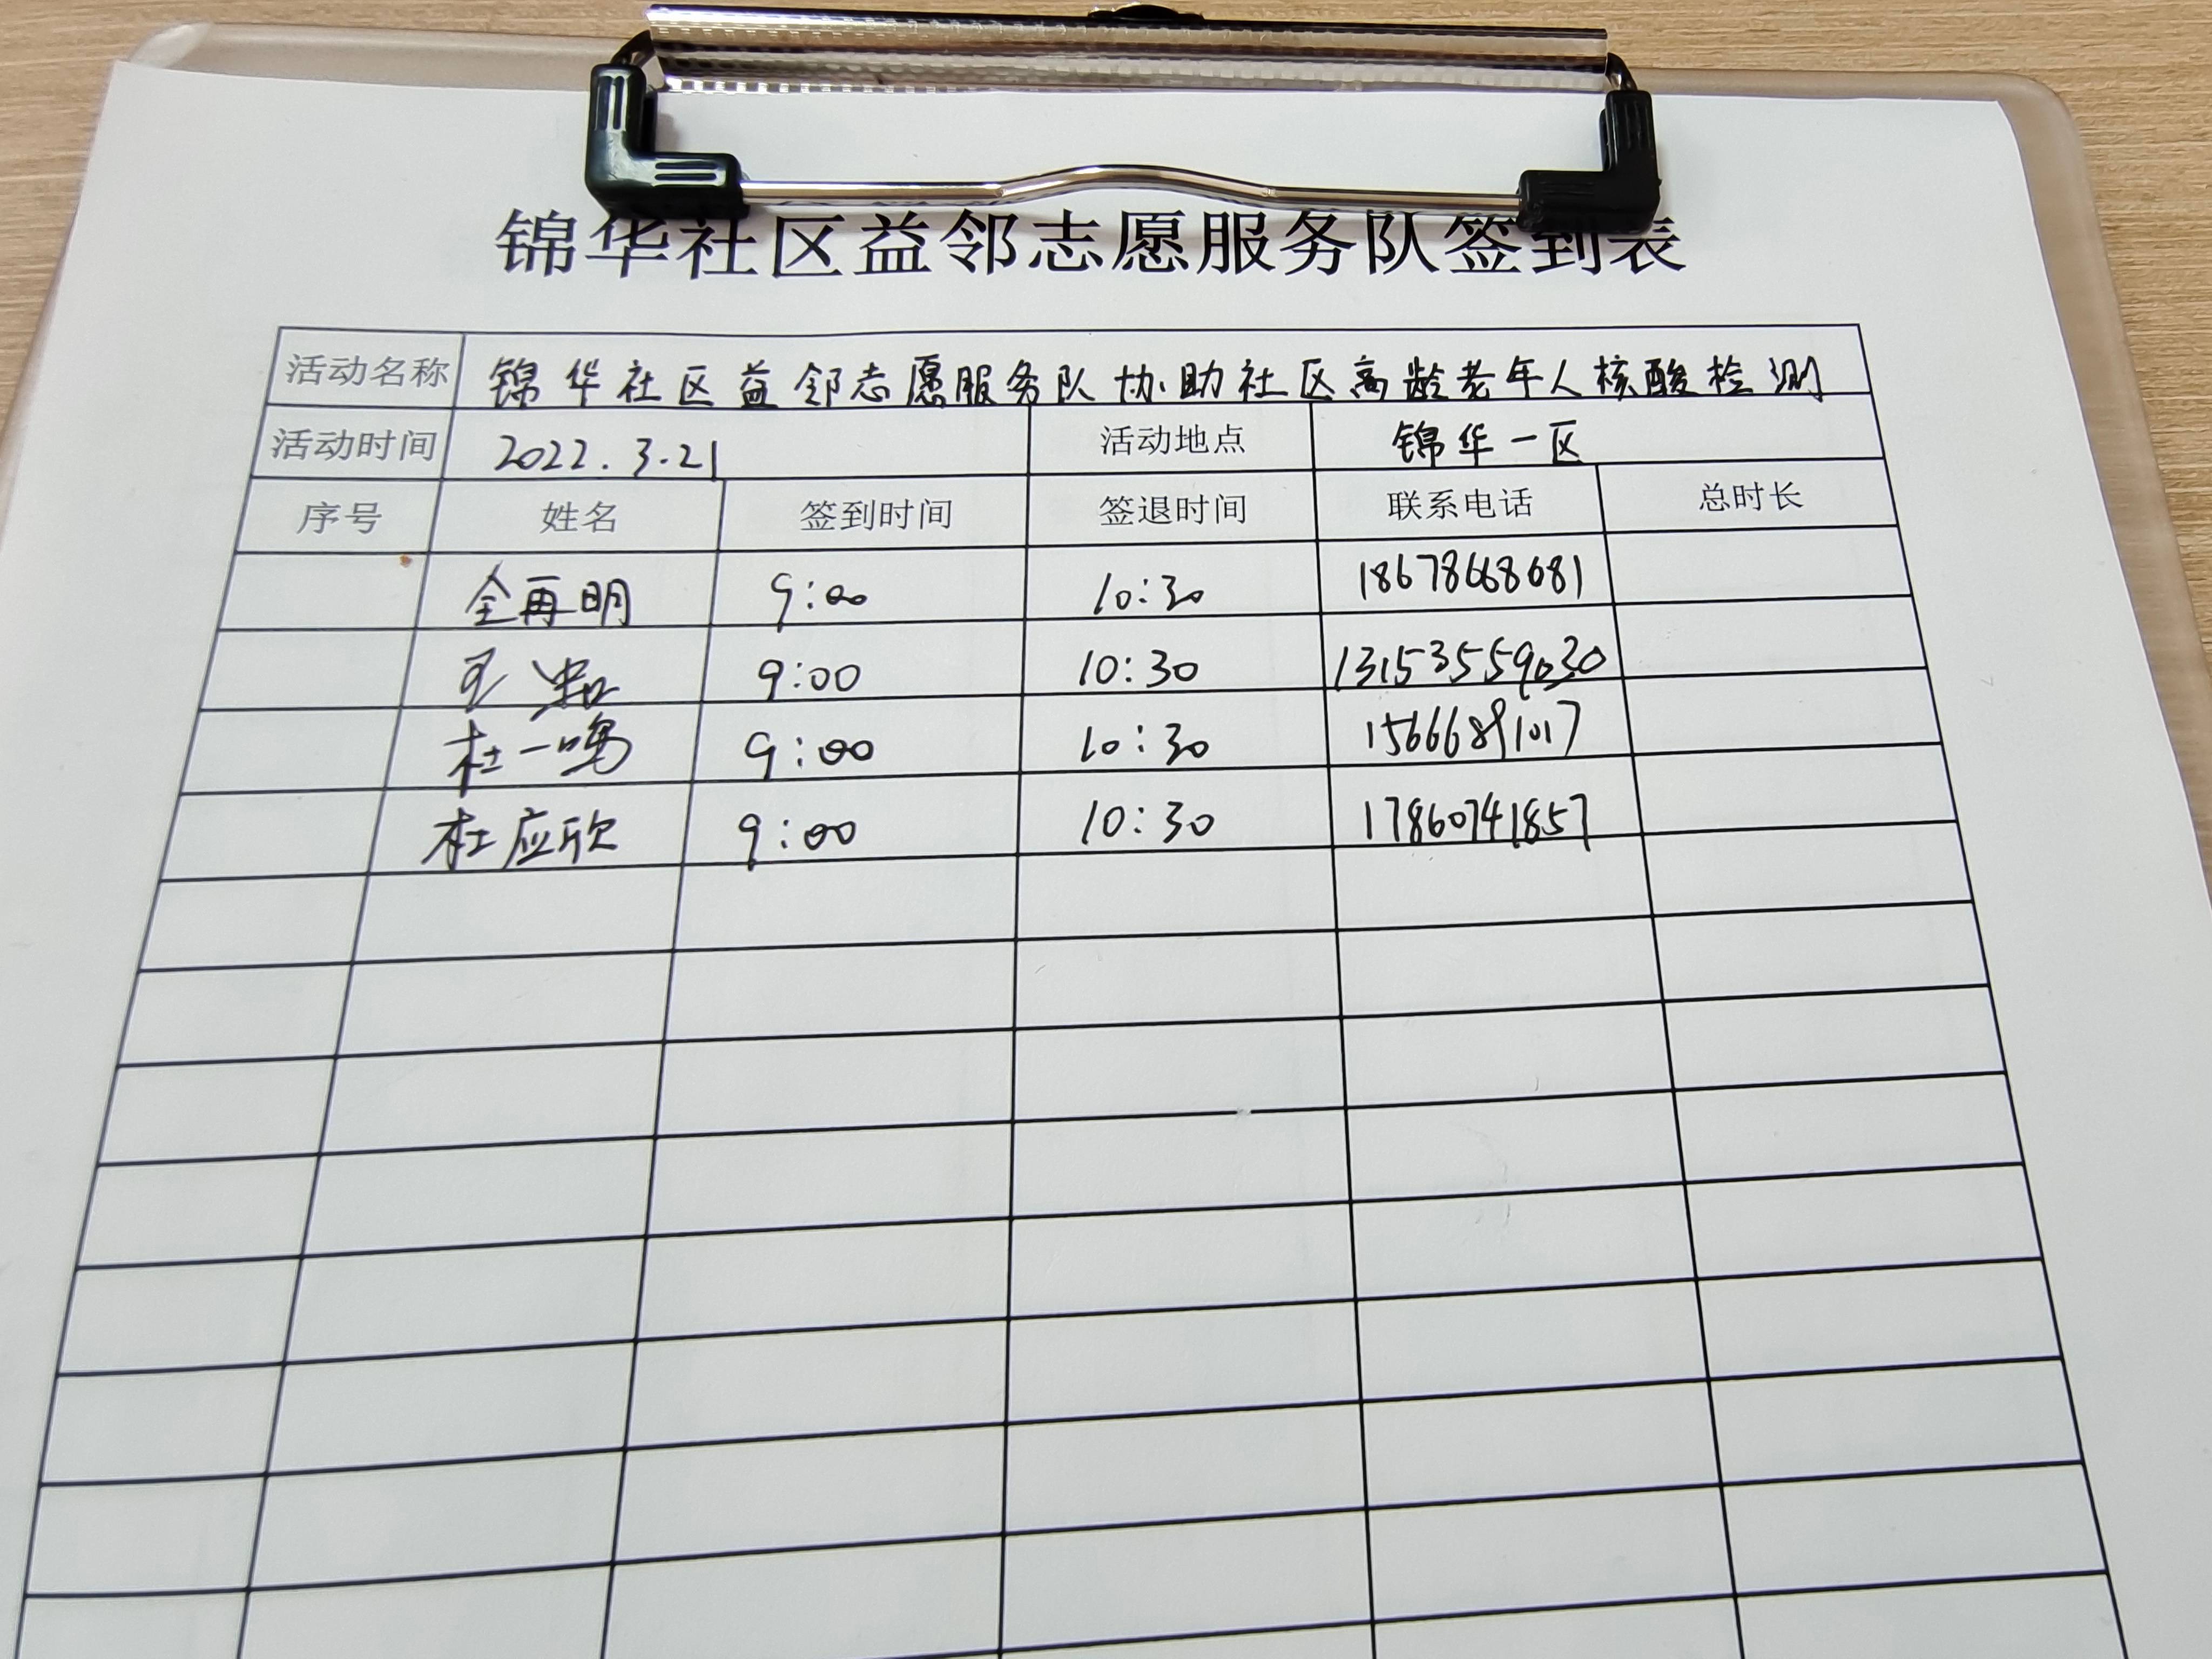 锦华社区益邻志愿服务队签到表
活动名称 锦华社区益邻志愿服务队协助社区高龄老年人核酸检测
活动时间 2022.3.21 活动地点 锦华一区
序号 姓名 签到时间 签退时间 联系电话 总时长
全再明 9:00 10:30 18678668681
9:00 10:30 13153559030
杜一鸣 9:00 10:30 15666891017
杜应欣 9:00 10:30 17860741857